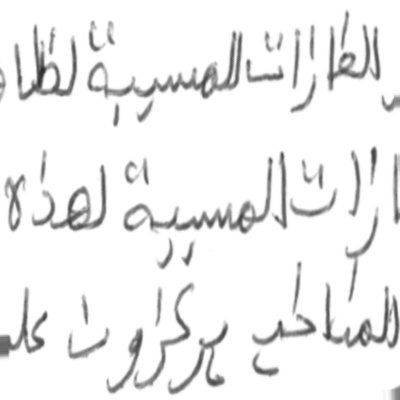 الغازات المسببة لظا
ازات المسببة لهذه
المناخي يركزون على